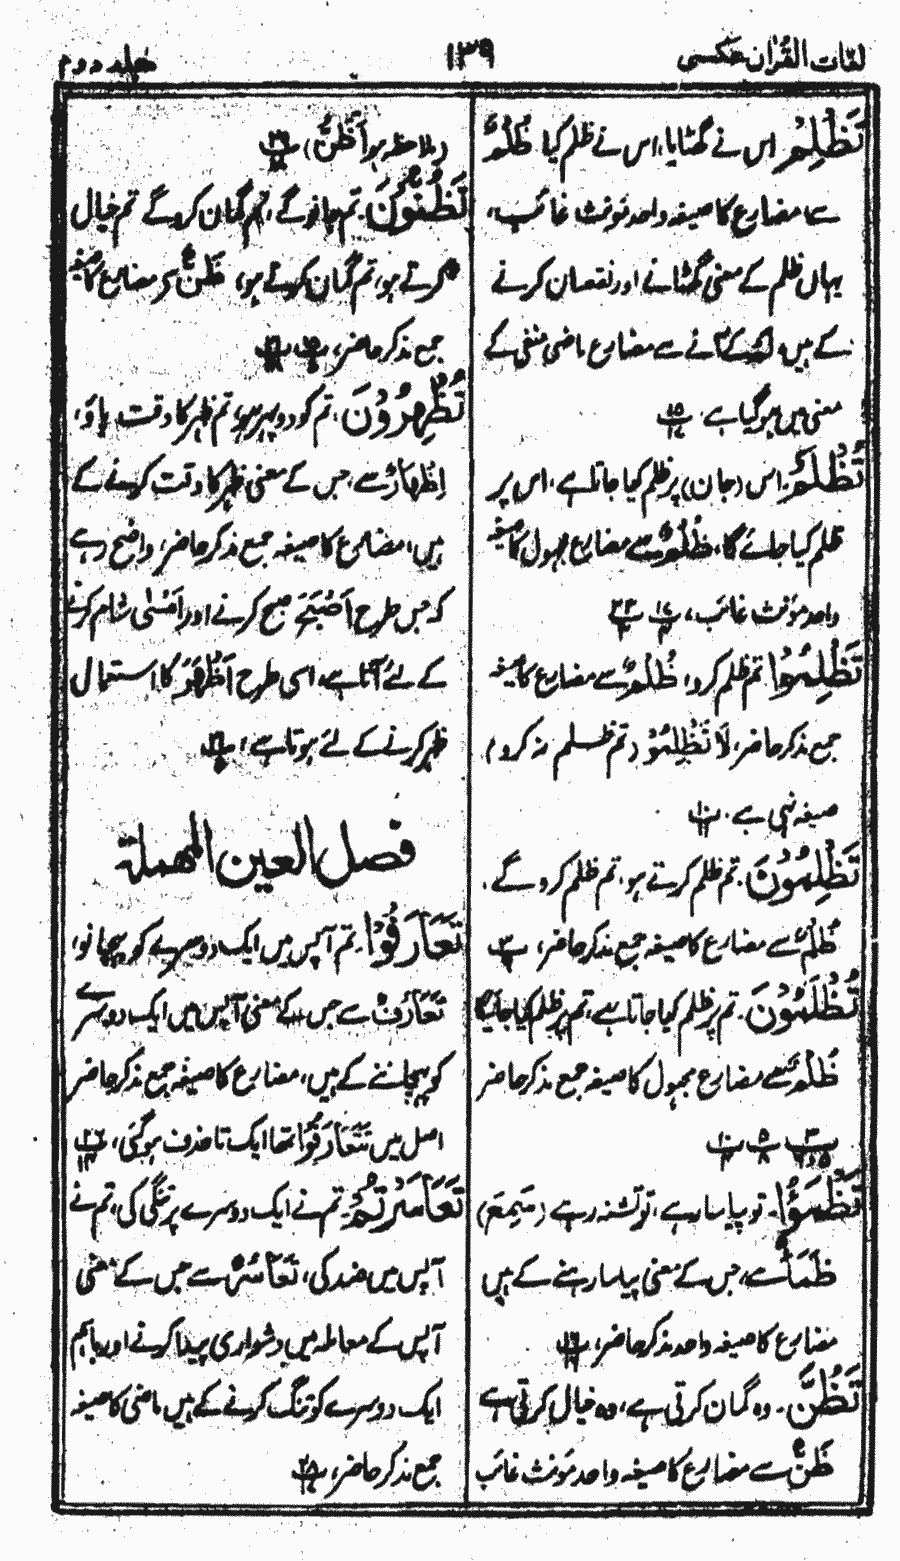 لغات القرآن عکسی
۱۳۹
جلد دوم
تَظْلِمْ اس نے گھٹایا، اس نے ظلم کیا، ظُلْمٌ
سے مضارع کا صیغہ واحد مونث غائب،
یہاں ظلم کے معنی گھٹانے اور نقصان کرنے
کے ہیں، لم کے آنے سے مضارع ماضی منفی کے
معنی میں ہوگیا ہے، ۱۵/۱۷
تُظْلَمُ اس (جان) پر ظلم کیا جاتا ہے، اس پر
ظلم کیا جائے گا، ظُلْمٌ سے مضارع مجہول کا صیغہ
واحد مؤنث غائب،
تَظْلِمُوْا تم ظلم کرو، ظُلْمٌ سے مضارع کا صیغہ
جمع مذکر حاضر، لَا تَظْلِمُوْا (تم ظلم نہ کرو)
صیغہ نہی ہے۔
تَظْلِمُوْنَ۔ تم ظلم کرتے ہو، تم ظلم کرو گے،
ظُلْمٌ سے مضارع کا صیغہ جمع مذکر حاضر،
تُظْلَمُوْنَ۔ تم پر ظلم کیا جاتا ہے، تم پر ظلم کیا جائیگا
ظُلْمٌ سے مضارع مجہول کا صیغہ جمع مذکر حاضر
تَظْمَؤُا۔ تو پیاسا رہے، تو تشنہ رہے (سَمِعَ)
ظَمَأٌ سے، جس کے معنی پیاسا رہنے کے ہیں
مضارع کا صیغہ واحد مذکر حاضر،
تَظُنُّ۔ وہ گمان کرتی ہے، وہ خیال کرتی ہے
ظَنٌّ سے مضارع کا صیغہ واحد مونث غائب
(ملاحظہ ہو أَظُنُّ)،
تَظُنُّوْنَ۔ تم جانو گے، تم گمان کرو گے تم خیال
کرتے ہو، تم گمان کرتے ہو، ظَنٌّ سے مضارع کا صیغہ
جمع مذکر حاضر،
تُظْهِرُوْنَ، تم کو دوپہر ہو، تم ظہر کا وقت پاؤ،
اِظْهَارٌ سے، جس کے معنی ظہر کا وقت کرنے کے
ہیں، مضارع کا صیغہ جمع مذکر حاضر، واضح رہے
کہ جس طرح أَصْبَحَ صبح کرنے اور أَمْسٰی شام کرنے
کے لئے آتا ہے، اسی طرح أَظْهَرَ کا استعمال
ظہر کرنے کے لئے ہوتا ہے،
فصل العين المهملة
تَعَارَفُوْا۔ تم آپس میں ایک دوسرے کو پہچانو،
تَعَارُفٌ سے جس کے معنی آپس میں ایک دوسرے
کو پہچاننے کے ہیں، مضارع کا صیغہ جمع مذکر حاضر
اصل میں تَتَعَارَفُوْا تھا ایک تا حذف ہوگئی،
تَعَاسَرْتُمْ۔ تم نے ایک دوسرے پر تنگی کی، تم نے
آپس میں ضد کی، تَعَاسُرٌ سے جس کے معنی
آپس کے معاملہ میں دشواری پیدا کرنے اور باہم
ایک دوسرے کو تنگ کرنے کے ہیں ماضی کا صیغہ
جمع مذکر حاضر،